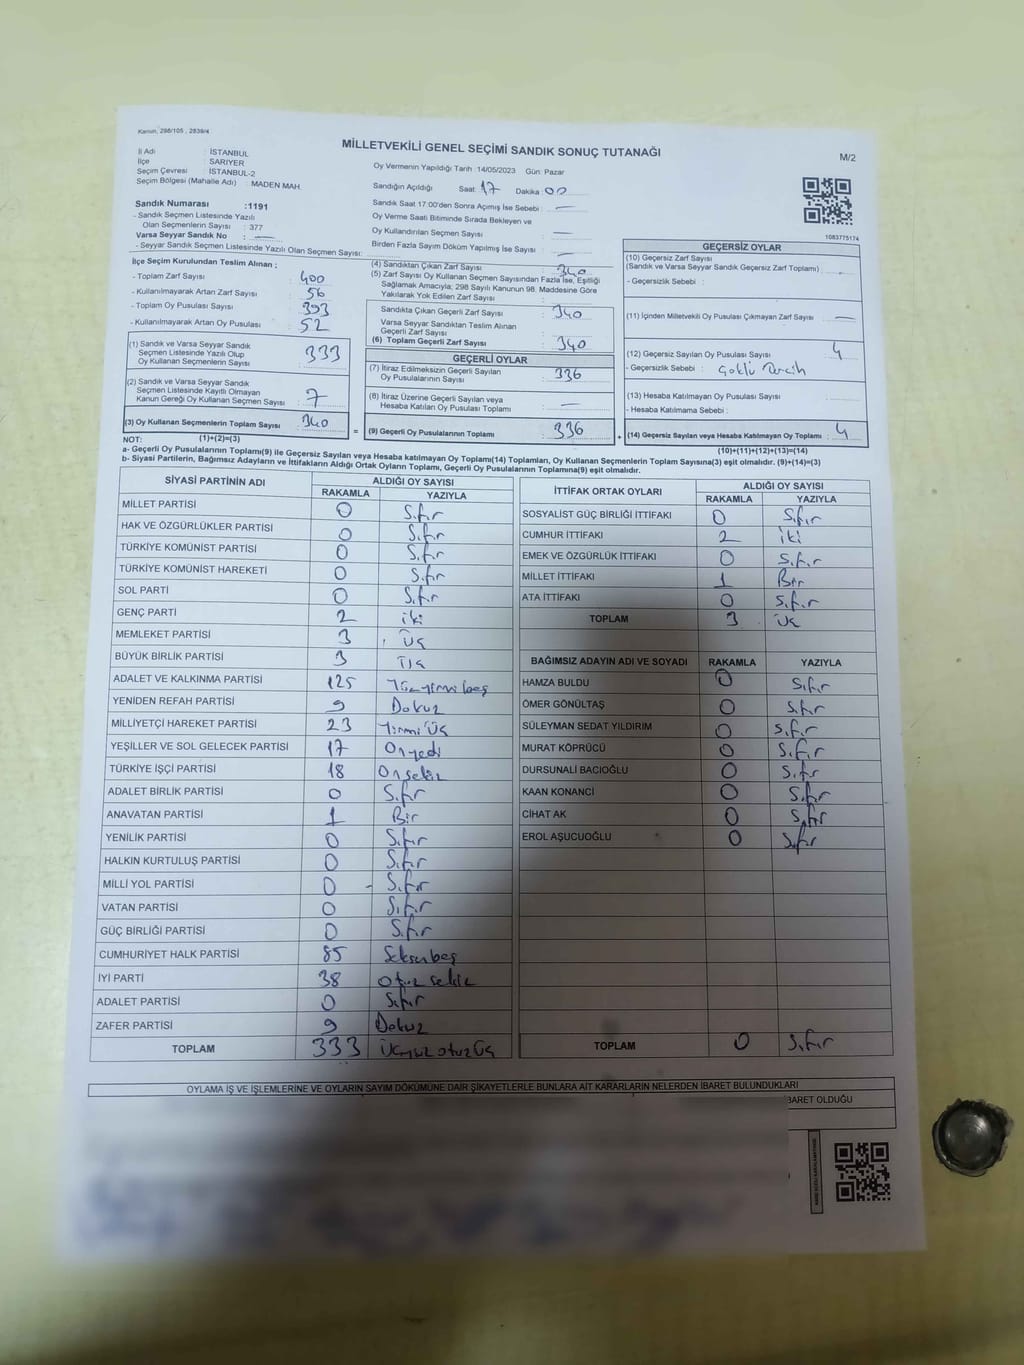 Kanun, 298/105 , 2839/4
MİLLETVEKİLİ GENEL SEÇİMİ SANDIK SONUÇ TUTANAĞI
M/2
İl Adı : İSTANBUL
İlçe : SARIYER
Seçim Çevresi : İSTANBUL-2
Seçim Bölgesi (Mahalle Adı) : MADEN MAH.
Sandık Numarası :1191
- Sandık Seçmen Listesinde Yazılı
Olan Seçmenlerin Sayısı : 377
Varsa Seyyar Sandık No : —
- Seyyar Sandık Seçmen Listesinde Yazılı Olan Seçmen Sayısı:
Oy Vermenin Yapıldığı Tarih :14/05/2023 Gün: Pazar
Sandığın Açıldığı Saat: 17 Dakika: 00
Sandık Saat 17.00'den Sonra Açılmış İse Sebebi : —
Oy Verme Saati Bitiminde Sırada Bekleyen ve
Oy Kullandırılan Seçmen Sayısı : —
Birden Fazla Sayım Döküm Yapılmış İse Sayısı : —
1083775174
İlçe Seçim Kurulundan Teslim Alınan ;
- Toplam Zarf Sayısı : 400
- Kullanılmayarak Artan Zarf Sayısı : 56
- Toplam Oy Pusulası Sayısı : 393
- Kullanılmayarak Artan Oy Pusulası : 52
(1) Sandık ve Varsa Seyyar Sandık
Seçmen Listesinde Yazılı Olup
Oy Kullanan Seçmenlerin Sayısı : 333
(2) Sandık ve Varsa Seyyar Sandık
Seçmen Listesinde Kayıtlı Olmayan
Kanun Gereği Oy Kullanan Seçmen Sayısı : 7
(3) Oy Kullanan Seçmenlerin Toplam Sayısı : 340
(4) Sandıktan Çıkan Zarf Sayısı : 340
(5) Zarf Sayısı Oy Kullanan Seçmen Sayısından Fazla İse, Eşitliği
Sağlamak Amacıyla; 298 Sayılı Kanunun 98. Maddesine Göre
Yakılarak Yok Edilen Zarf Sayısı :
Sandıkta Çıkan Geçerli Zarf Sayısı : 340
Varsa Seyyar Sandıktan Teslim Alınan
Geçerli Zarf Sayısı :
(6) Toplam Geçerli Zarf Sayısı : 340
GEÇERLİ OYLAR
(7) İtiraz Edilmeksizin Geçerli Sayılan
Oy Pusulalarının Sayısı : 336
(8) İtiraz Üzerine Geçerli Sayılan veya
Hesaba Katılan Oy Pusulası Toplamı : —
= (9) Geçerli Oy Pusulalarının Toplamı : 336
GEÇERSİZ OYLAR
(10) Geçersiz Zarf Sayısı
(Sandık ve Varsa Seyyar Sandık Geçersiz Zarf Toplamı) :
- Geçersizlik Sebebi :
(11) İçinden Milletvekili Oy Pusulası Çıkmayan Zarf Sayısı : —
(12) Geçersiz Sayılan Oy Pusulası Sayısı : 4
- Geçersizlik Sebebi : Çoklu Tercih
(13) Hesaba Katılmayan Oy Pusulası Sayısı :
- Hesaba Katılmama Sebebi :
+ (14) Geçersiz Sayılan veya Hesaba Katılmayan Oy Toplamı : 4
NOT: (1)+(2)=(3) (10)+(11)+(12)+(13)=(14)
a- Geçerli Oy Pusulalarının Toplamı(9) ile Geçersiz Sayılan veya Hesaba katılmayan Oy Toplamı(14) Toplamları, Oy Kullanan Seçmenlerin Toplam Sayısına(3) eşit olmalıdır. (9)+(14)=(3)
b- Siyasi Partilerin, Bağımsız Adayların ve İttifakların Aldığı Ortak Oyların Toplamı, Geçerli Oy Pusulalarının Toplamına(9) eşit olmalıdır.
SİYASİ PARTİNİN ADI ALDIĞI OY SAYISI
RAKAMLA YAZIYLA
MİLLET PARTİSİ 0 Sıfır
HAK VE ÖZGÜRLÜKLER PARTİSİ 0 Sıfır
TÜRKİYE KOMÜNİST PARTİSİ 0 Sıfır
TÜRKİYE KOMÜNİST HAREKETİ 0 Sıfır
SOL PARTİ 0 Sıfır
GENÇ PARTİ 2 iki
MEMLEKET PARTİSİ 3 Üç
BÜYÜK BİRLİK PARTİSİ 3 Üç
ADALET VE KALKINMA PARTİSİ 125 Yüzyirmibeş
YENİDEN REFAH PARTİSİ 9 Dokuz
MİLLİYETÇİ HAREKET PARTİSİ 23 Yirmi Üç
YEŞİLLER VE SOL GELECEK PARTİSİ 17 Onyedi
TÜRKİYE İŞÇİ PARTİSİ 18 Onsekiz
ADALET BİRLİK PARTİSİ 0 Sıfır
ANAVATAN PARTİSİ 1 Bir
YENİLİK PARTİSİ 0 Sıfır
HALKIN KURTULUŞ PARTİSİ 0 Sıfır
MİLLİ YOL PARTİSİ 0 Sıfır
VATAN PARTİSİ 0 Sıfır
GÜÇ BİRLİĞİ PARTİSİ 0 Sıfır
CUMHURİYET HALK PARTİSİ 85 Seksenbeş
İYİ PARTİ 38 otuz sekiz
ADALET PARTİSİ 0 Sıfır
ZAFER PARTİSİ 9 Dokuz
TOPLAM 333 Üçyüz otuz Üç
İTTİFAK ORTAK OYLARI ALDIĞI OY SAYISI
RAKAMLA YAZIYLA
SOSYALİST GÜÇ BİRLİĞİ İTTİFAKI 0 Sıfır
CUMHUR İTTİFAKI 2 iki
EMEK VE ÖZGÜRLÜK İTTİFAKI 0 Sıfır
MİLLET İTTİFAKI 1 Bir
ATA İTTİFAKI 0 Sıfır
TOPLAM 3 Üç
BAĞIMSIZ ADAYIN ADI VE SOYADI RAKAMLA YAZIYLA
HAMZA BULDU 0 Sıfır
ÖMER GÖNÜLTAŞ 0 Sıfır
SÜLEYMAN SEDAT YILDIRIM 0 Sıfır
MURAT KÖPRÜCÜ 0 Sıfır
DURSUNALİ BACIOĞLU 0 Sıfır
KAAN KONANCİ 0 Sıfır
CİHAT AK 0 Sıfır
EROL AŞUCUOĞLU 0 Sıfır
TOPLAM 0 Sıfır
OYLAMA İŞ VE İŞLEMLERİNE VE OYLARIN SAYIM DÖKÜMÜNE DAİR ŞİKAYETLERLE BUNLARA AİT KARARLARIN NELERDEN İBARET BULUNDUKLARI
BARET OLDUĞU